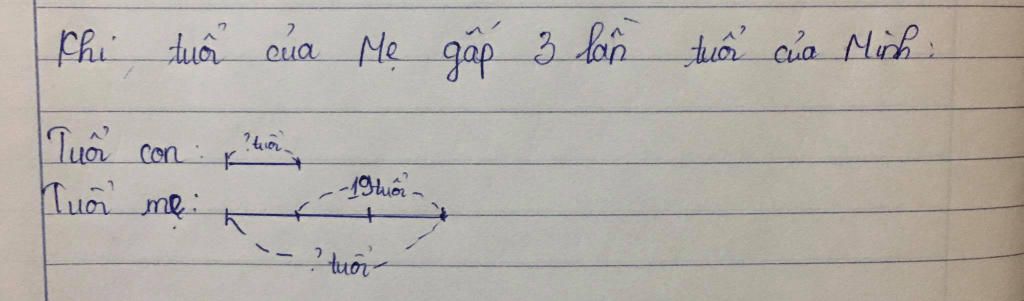 Khi tuổi của Mẹ gấp 3 lần tuổi của Minh:
Tuổi con: ? tuổi
19 tuổi
Tuổi mẹ:
? tuổi